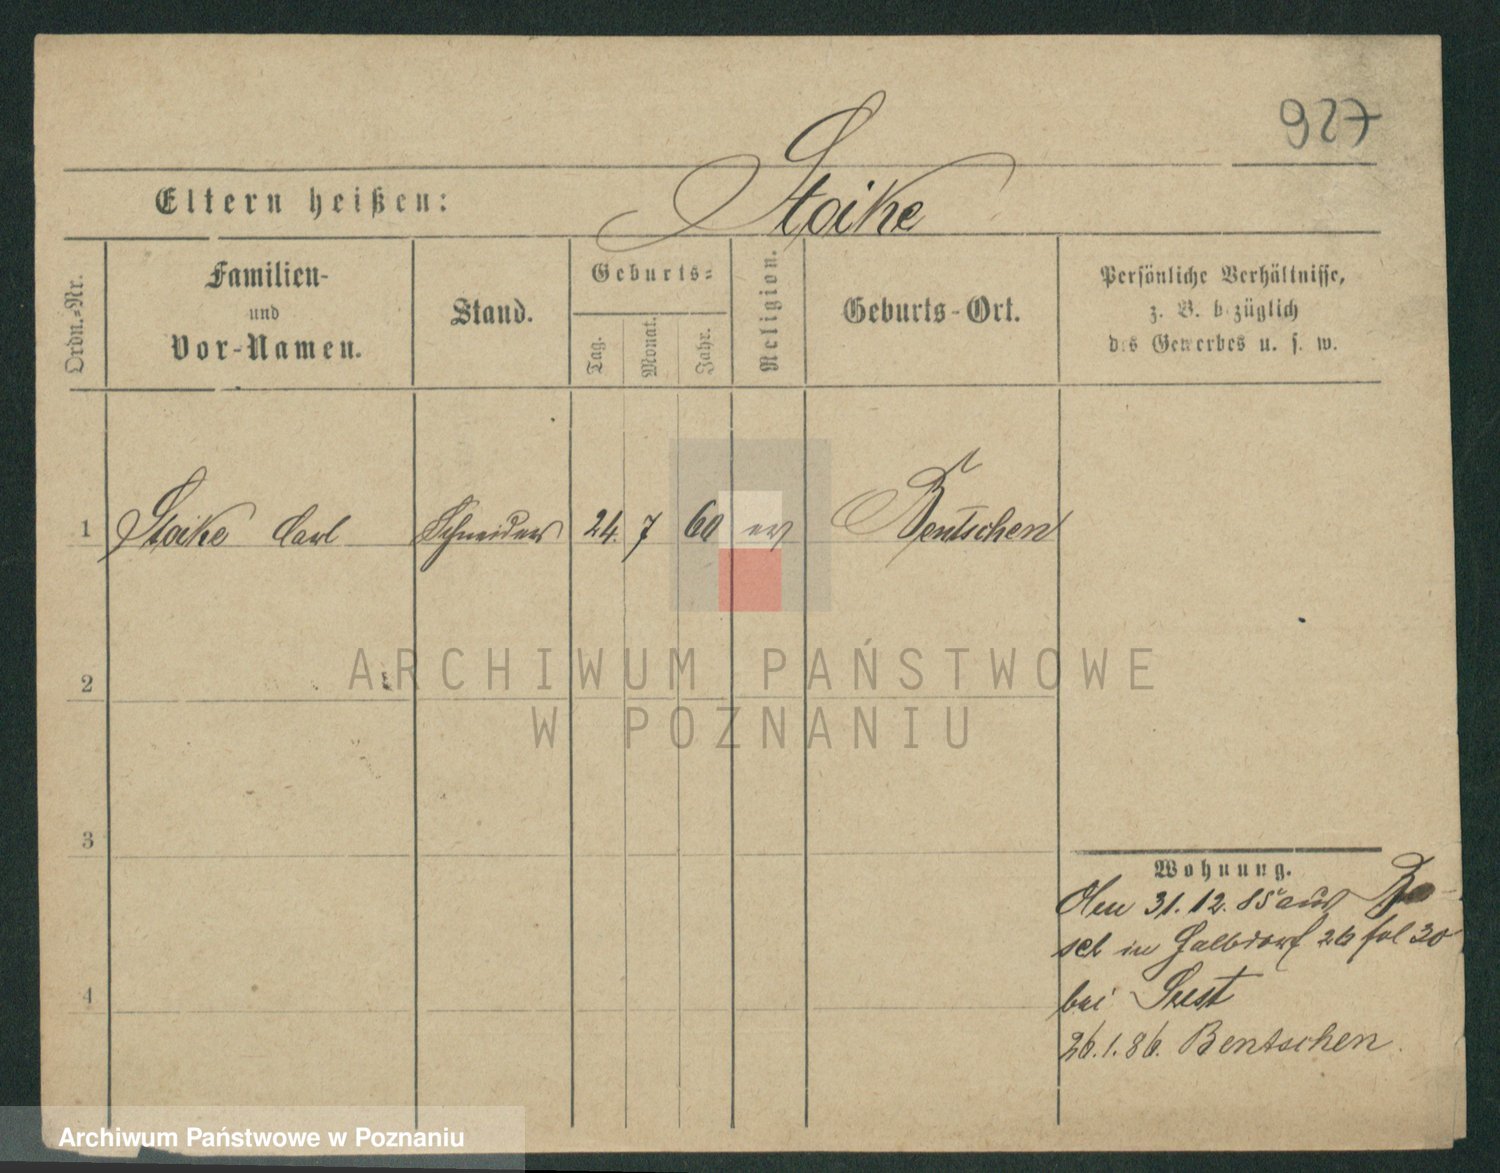 927
Eltern heißen: Stoike
Ordn.-Nr.
Familien-
und
Vor-Namen.
Stand.
Geburts-
Tag.
Monat.
Jahr.
Religion.
Geburts-Ort.
Persönliche Verhältnisse,
z. B. bezüglich
des Gewerbes u. s. w.
1 Stoike Carl Schneider 24. 7 60 ev Bentschen
2
ARCHIWUM PAŃSTWOWE
W POZNANIU
3
Wohnung.
31.12.85 aus
in 26 fol 30
4
bei
26.1.86. Bentschen.
Archiwum Państwowe w Poznaniu